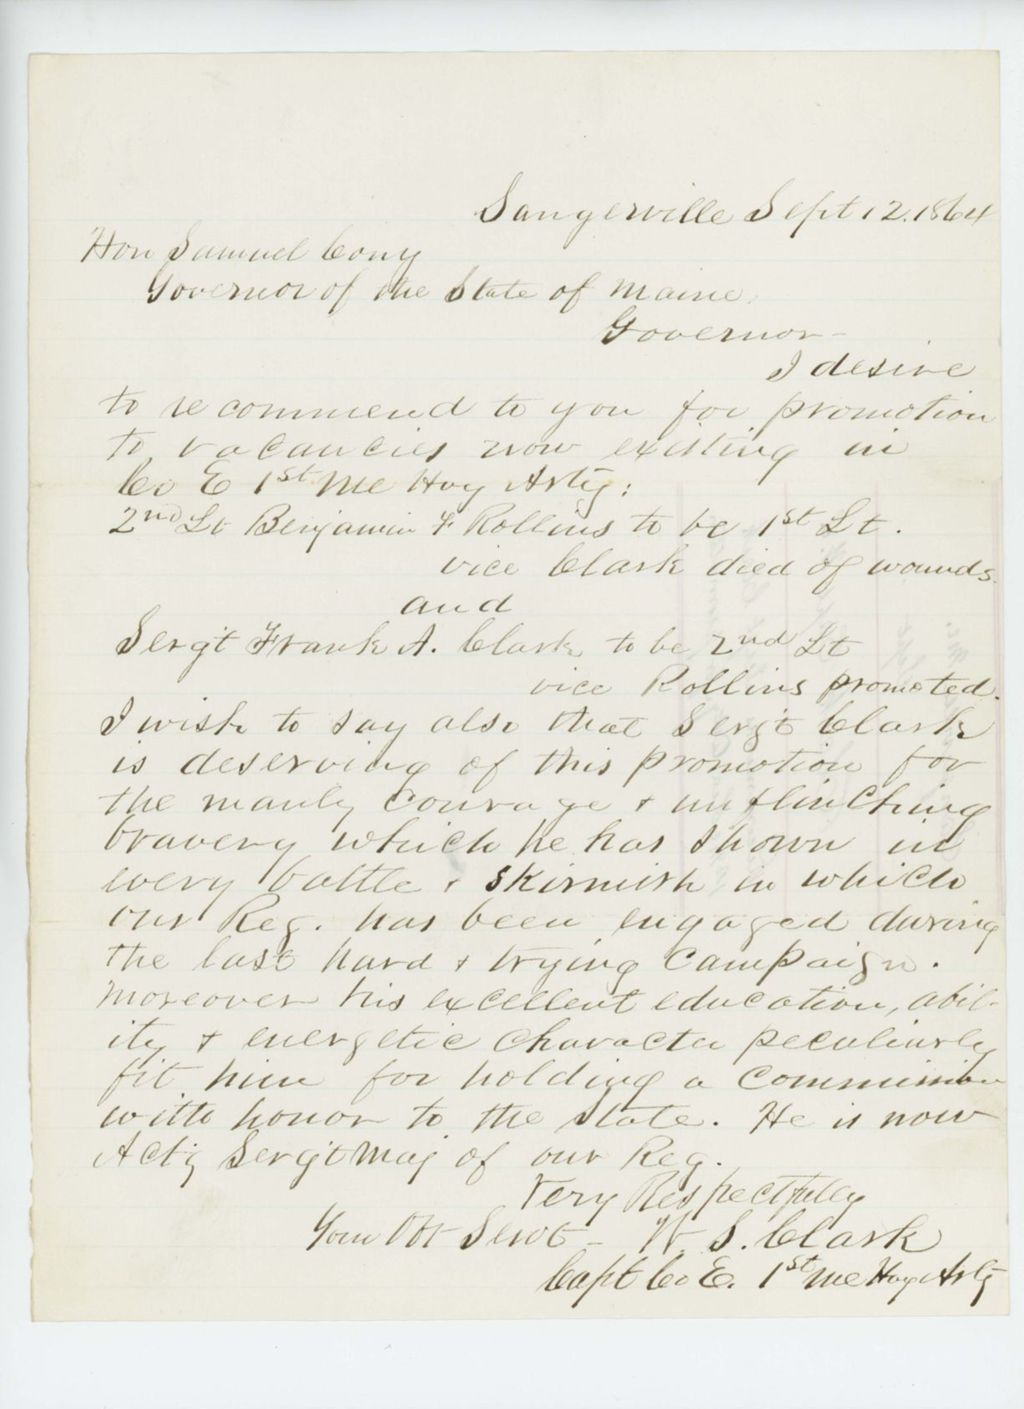 Sangerville Sept 12. 1864
Hon Samuel Cony
Governor of the State of Maine.
Governor -
I desire
to recommend to you for promotion
to vacancies now existing in
Co E 1st Me Hvy Arty:
2nd Lt Benjamin F Rollins to be 1st Lt.
vice Clark died of wounds.
and
Sergt Frank A. Clark to be 2nd Lt
vice Rollins promoted.
I wish to say also that Sergt Clark
is deserving of this promotion for
the manly courage & unflinching
bravery which he has shown in
every battle & skirmish in which
our Reg. has been engaged during
the last hard & trying campaign.
Moreover his excellent education, abil-
ity & energetic character peculiarly
fit him for holding a commission
with honor to the State. He is now
Act'g Sergt Maj of our Reg.
Very Respectfully
Your Obt Servt - W. S. Clark
Capt Co E. 1st Me Hvy Arty